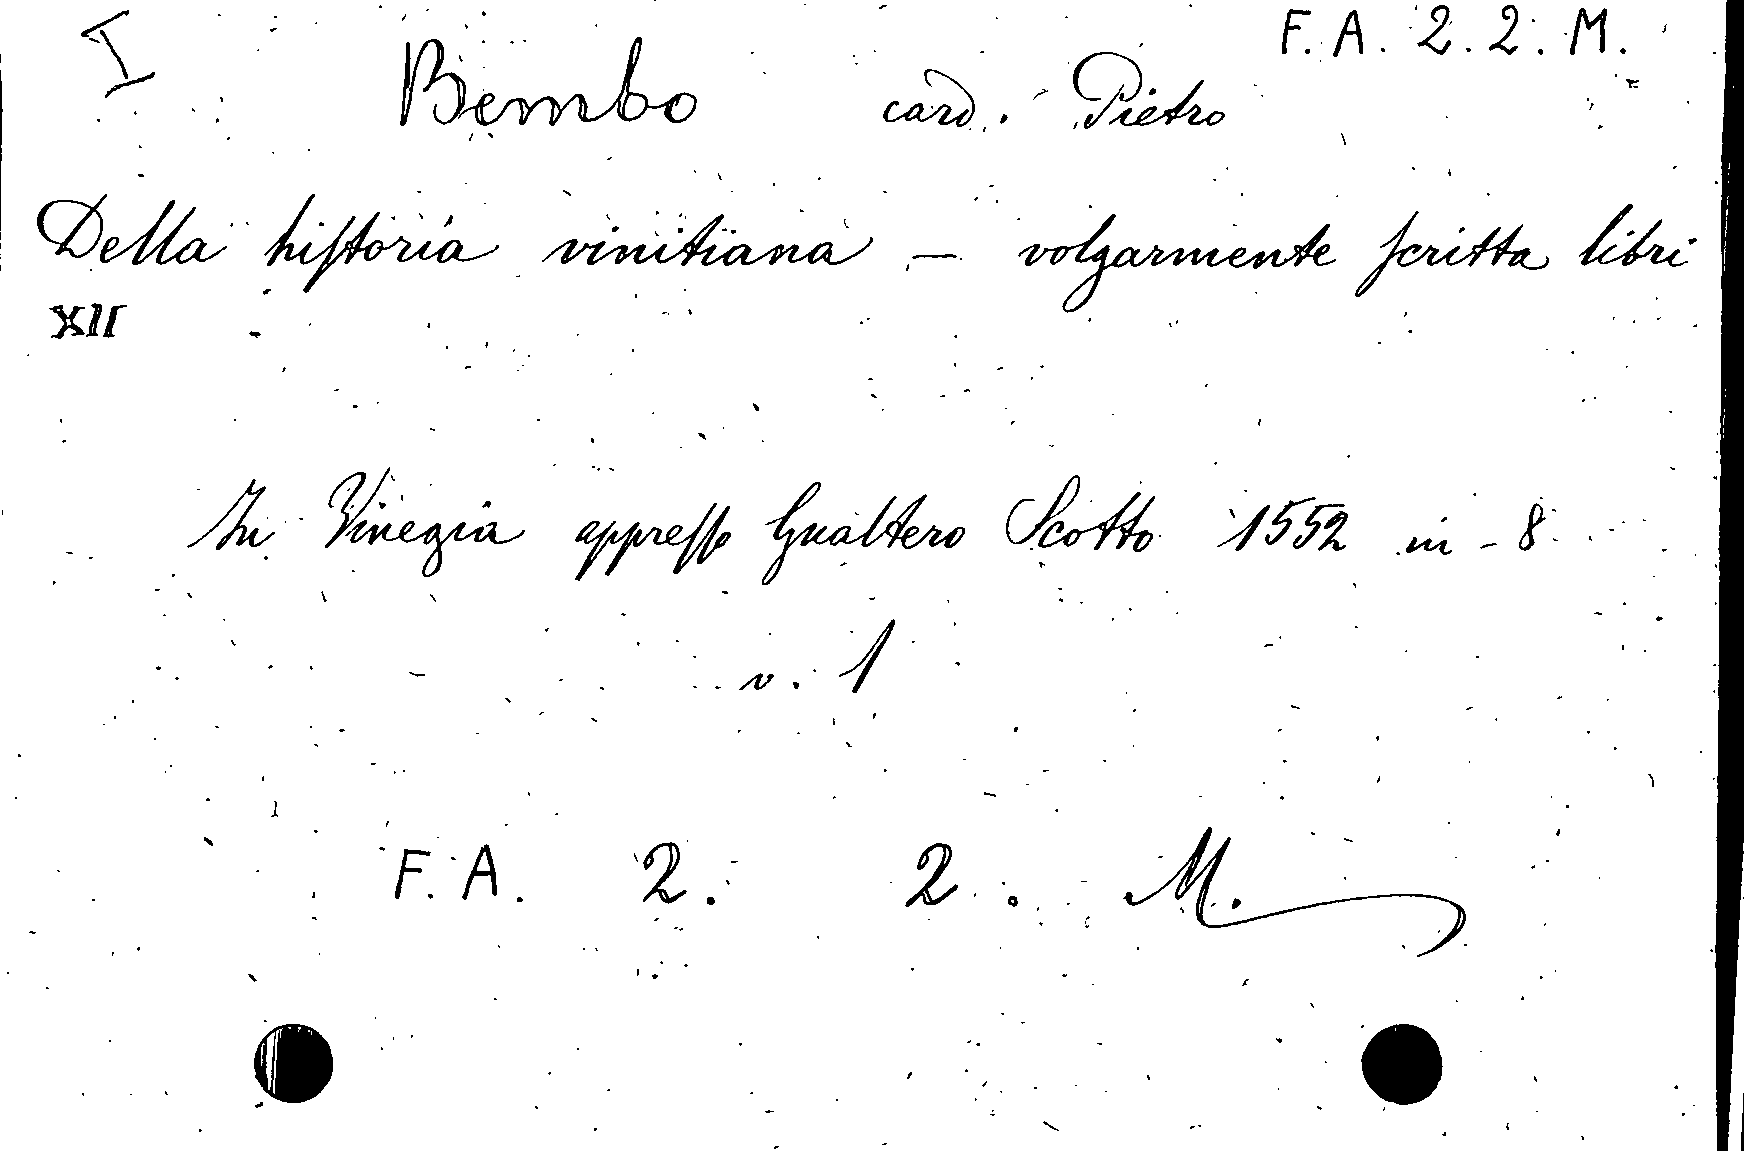 I
F. A. 2. 2. M.
Bembo card. Pietro
Della hiſtoria vinitiana — volgarmente ſcritta libri
XII
In Vinegia appreſſo Gualtero Scotto 1552 in-8
v. 1
F. A. 2. 2. M.